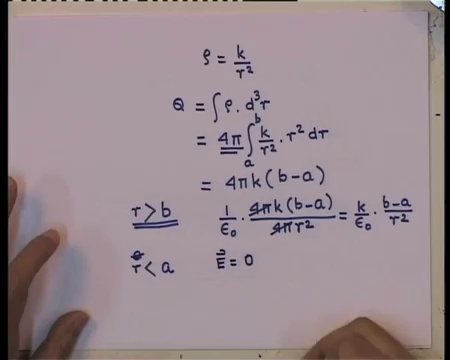 ρ = k/r²
Q = ∫ ρ. d³r
= 4π ∫ₐᵇ k/r² · r² dr
= 4πk (b-a)
r > b 1/ε₀ · 4πk(b-a)/4πr² = k/ε₀ · b-a/r²
r < a E⃗ = 0